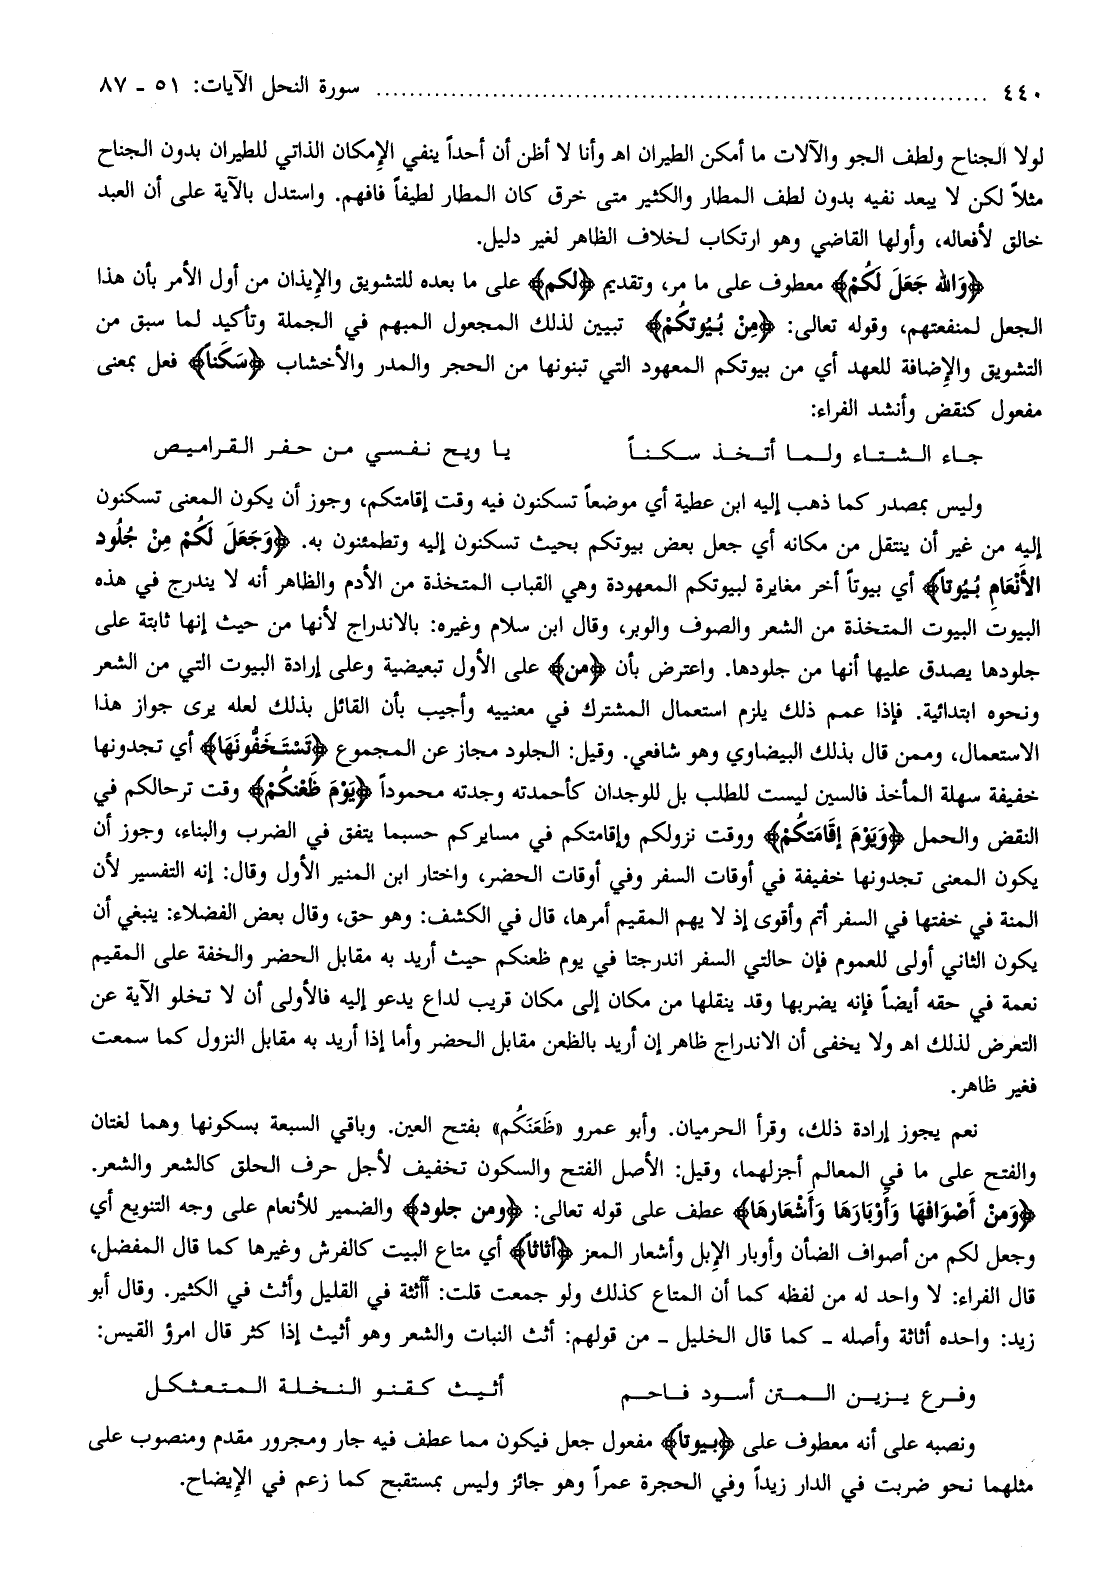 ٤٤٠ ........................................................................ سورة النحل الآيات: ٥١ ـ ٨٧
لولا الجناح ولطف الجو والآلات ما أمكن الطيران اهـ وأنا لا أظن أن أحداً ينفي الإمكان الذاتي للطيران بدون الجناح
مثلاً لكن لا يبعد نفيه بدون لطف المطار والكثير متى خرق كان المطار لطيفاً فافهم. واستدل بالآية على أن العبد
خالق لأفعاله، وأولها القاضي وهو ارتكاب لخلاف الظاهر لغير دليل.
﴿وَالله جَعَلَ لَكُمْ﴾ معطوف على ما مر، وتقديم ﴿لكم﴾ على ما بعده للتشويق والإيذان من أول الأمر بأن هذا
الجعل لمنفعتهم، وقوله تعالى: ﴿مِنْ بُيُوتكُمْ﴾ تبيين لذلك المجعول المبهم في الجملة وتأكيد لما سبق من
التشويق والإضافة للعهد أي من بيوتكم المعهود التي تبنونها من الحجر والمدر والأخشاب ﴿سَكَناً﴾ فعل بمعنى
مفعول كنقض وأنشد الفراء:
جاء الشتاء ولما أتخذ سكناً يا ويح نفسي من حفر القراميص
وليس بمصدر كما ذهب إليه ابن عطية أي موضعاً تسكنون فيه وقت إقامتكم، وجوز أن يكون المعنى تسكنون
إليه من غير أن ينتقل من مكانه أي جعل بعض بيوتكم بحيث تسكنون إليه وتطمئنون به. ﴿وَجَعَلَ لَكُمْ مِنْ جُلُود
الأَنْعَامِ بُيُوتاً﴾ أي بيوتاً أخر مغايرة لبيوتكم المعهودة وهي القباب المتخذة من الأدم والظاهر أنه لا يندرج في هذه
البيوت البيوت المتخذة من الشعر والصوف والوبر، وقال ابن سلام وغيره: بالاندراج لأنها من حيث إنها ثابتة على
جلودها يصدق عليها أنها من جلودها. واعترض بأن ﴿من﴾ على الأول تبعيضية وعلى إرادة البيوت التي من الشعر
ونحوه ابتدائية. فإذا عمم ذلك يلزم استعمال المشترك في معنييه وأجيب بأن القائل بذلك لعله يرى جواز هذا
الاستعمال، وممن قال بذلك البيضاوي وهو شافعي. وقيل: الجلود مجاز عن المجموع ﴿تَسْتَخفُّونَهَا﴾ أي تجدونها
خفيفة سهلة المأخذ فالسين ليست للطلب بل للوجدان كأحمدته وجدته محموداً ﴿يَوْمَ ظَعْنكُمْ﴾ وقت ترحالكم في
النقض والحمل ﴿وَيَوْمَ إقَامَتكُمْ﴾ ووقت نزولكم وإقامتكم في مسايركم حسبما يتفق في الضرب والبناء، وجوز أن
يكون المعنى تجدونها خفيفة في أوقات السفر وفي أوقات الحضر، واختار ابن المنير الأول وقال: إنه التفسير لأن
المنة في خفتها في السفر أتم وأقوى إذ لا يهم المقيم أمرها، قال في الكشف: وهو حق، وقال بعض الفضلاء: ينبغي أن
يكون الثاني أولى للعموم فإن حالتي السفر اندرجتا في يوم ظعنكم حيث أريد به مقابل الحضر والخفة على المقيم
نعمة في حقه أيضاً فإنه يضربها وقد ينقلها من مكان إلى مكان قريب لداع يدعو إليه فالأولى أن لا تخلو الآية عن
التعرض لذلك اهـ ولا يخفى أن الاندراج ظاهر إن أريد بالظعن مقابل الحضر وأما إذا أريد به مقابل النزول كما سمعت
فغير ظاهر.
نعم يجوز إرادة ذلك، وقرأ الحرميان. وأبو عمرو «ظَعَنَكُم» بفتح العين. وباقي السبعة بسكونها وهما لغتان
والفتح على ما في المعالم أجزلهما، وقيل: الأصل الفتح والسكون تخفيف لأجل حرف الحلق كالشعر والشعر.
﴿وَمنْ أَصْوَافهَا وَأَوْبَارهَا وَأَشْعَارهَا﴾ عطف على قوله تعالى: ﴿ومن جلود﴾ والضمير للأنعام على وجه التنويع أي
وجعل لكم من أصواف الضأن وأوبار الإبل وأشعار المعز ﴿أثاثاً﴾ أي متاع البيت كالفرش وغيرها كما قال المفضل،
قال الفراء: لا واحد له من لفظه كما أن المتاع كذلك ولو جمعت قلت: أأثثة في القليل وأثث في الكثير. وقال أبو
زيد: واحده أثاثة وأصله ـ كما قال الخليل ـ من قولهم: أثث النبات والشعر وهو أثيث إذا كثر قال امرؤ القيس:
وفرع يزين المتن أسود فاحم أثيث كقنو النخلة المتعثكل
ونصبه على أنه معطوف على ﴿بيوتاً﴾ مفعول جعل فيكون مما عطف فيه جار ومجرور مقدم ومنصوب على
مثلهما نحو ضربت في الدار زيداً وفي الحجرة عمراً وهو جائز وليس بمستقبح كما زعم في الإيضاح.